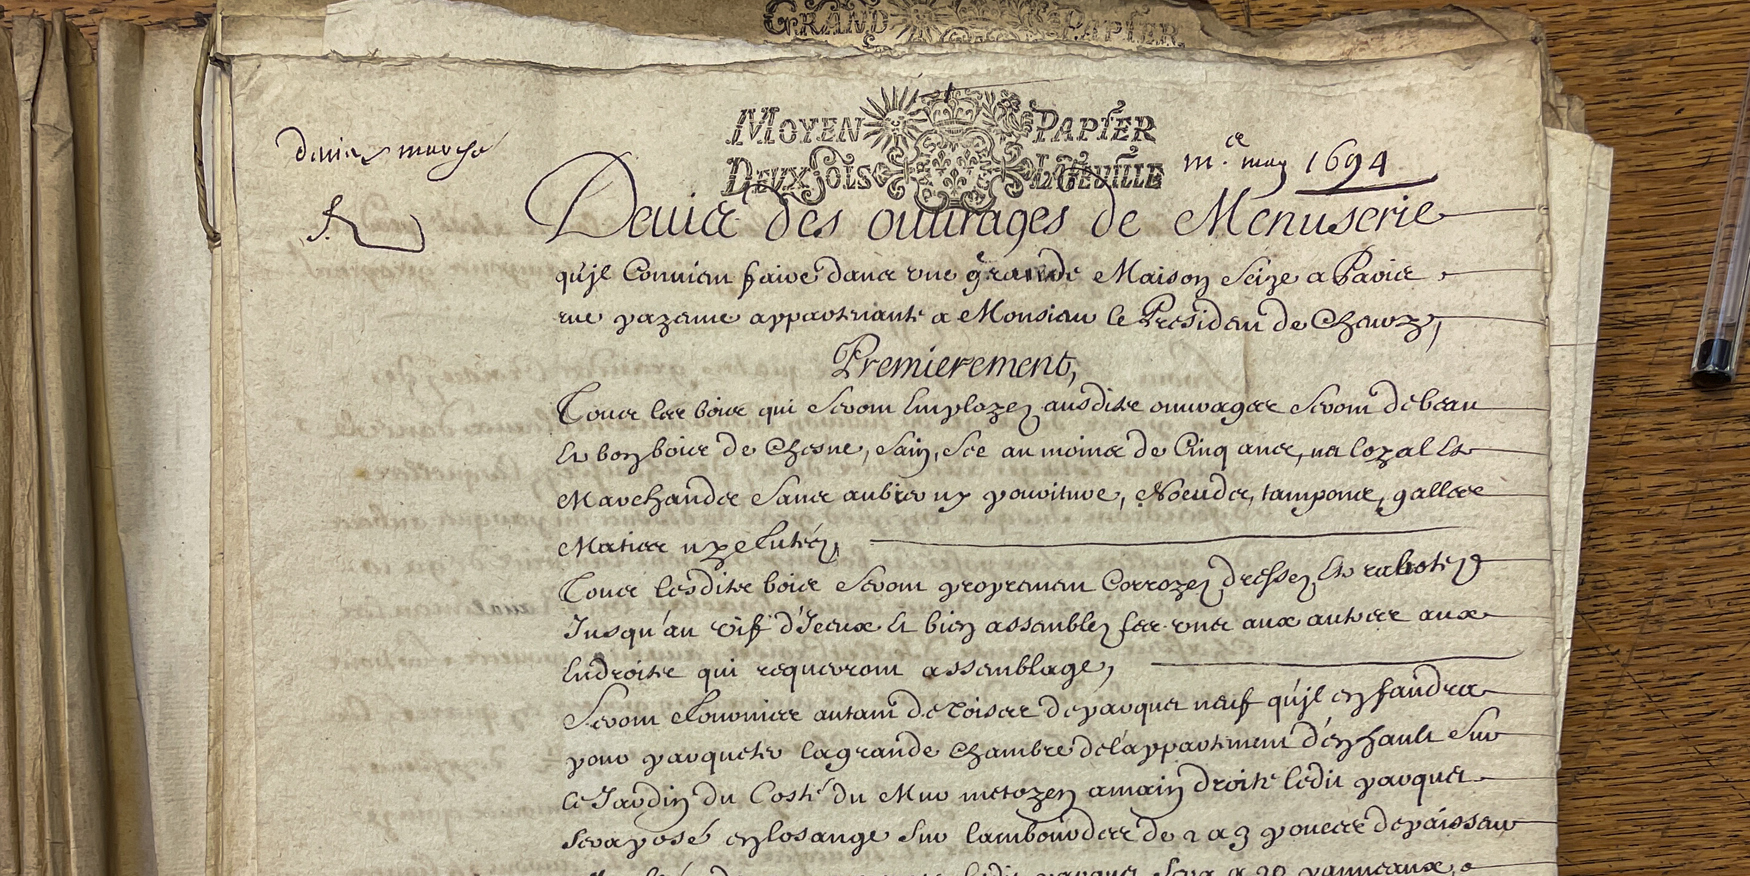 GRAND PAPIER
MOYEN PAPIER
DEUX SOLS LA FEUILLE
devis & marché
m.ce may 1694
Devis des ouurages de Menuserie
qu'jl Conuient faire dans une grande Maison Seize a Paris
rue appartenante a Monsieur le President de
Premierement,
Tous les bois qui Seront Employez ausdits ouurages Seront de beau
Et bon bois de Chesne, Sain, Sec au moins de Cinq ans, vif loyal Et
Marchandz Sans aubier ny pouriture, Noeuds, tampons, galles
Mastics ny futées,
Tous lesdits bois Seront proprement Corroyez, dressez, Et rabotez
Jusqu'au vif d'Jceux Et bien assemblez les uns aux autres aux
Endroits qui requerront assemblage,
Seront fournies autant de Toises de parquet neuf qu'jl en faudra
pour parqueter la grande Chambre de l'appartement d'en hault Sur
le Jardin du Costé du Mur metoyen a main droite ledit parquet
Sera posé en losange Sur lambourdes de 2 a 3 pouces depaisseur
ledit parquet Sera a 20 panneaux,